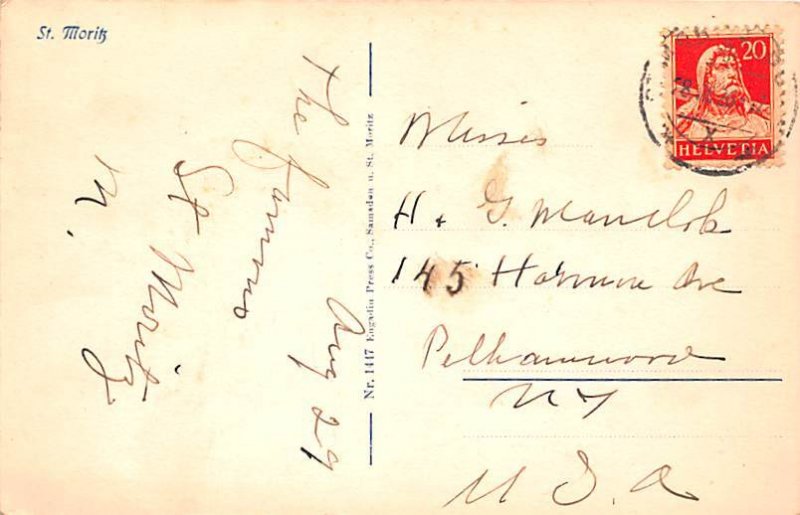 St. Moritz
The famous
St Moritz
M.
Aug 29
Nr. 1447 Engadin Press Co., Samaden u. St. Moritz
Misses
H + G.
145 Ave
Pelhamwood
NY
U S A
20
HELVETIA